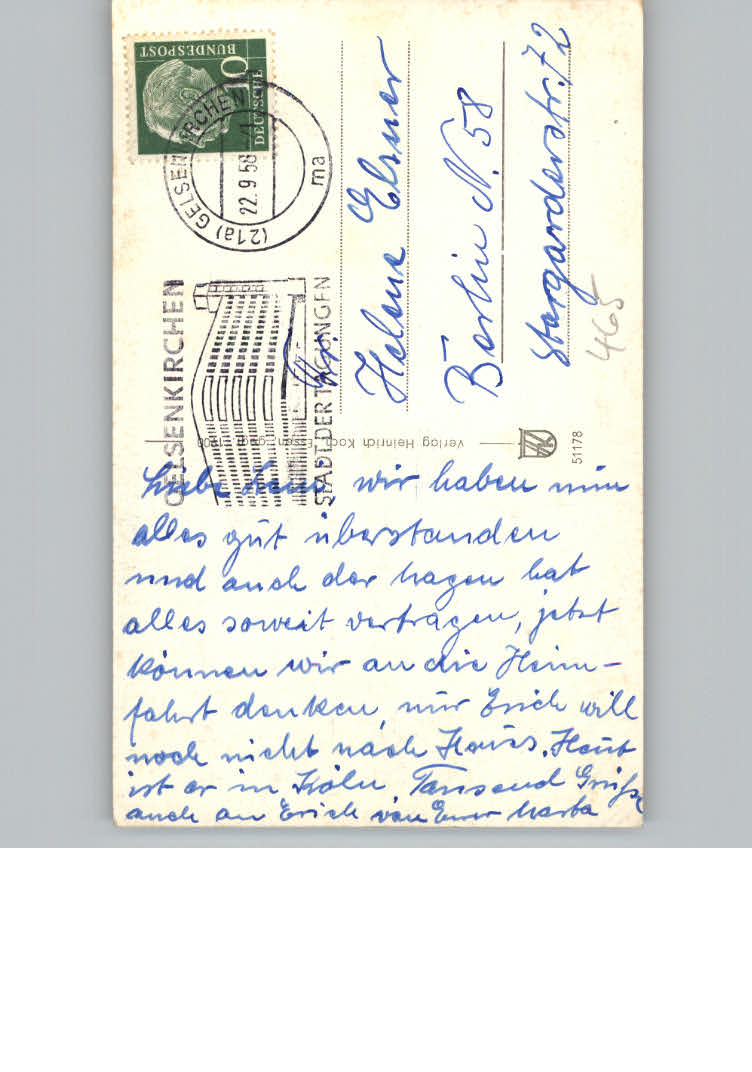 DEUTSCHE
BUNDESPOST
10
(21a) GELSENKIRCHEN 1
22.9.58
ma
GELSENKIRCHEN
STADT DER TAGUNGEN
Helene Elsner
Berlin N. 58
Stargarderstr. 72
465
Verlag Heinrich Koch, Essen, gegr. 1900
51178
Liebe Leni, wir haben nun
alles gut überstanden
und auch der Magen hat
alles soweit vertragen, jetzt
können wir an die Heim-
fahrt denken, nur Erich will
noch nicht nach Haus. Heut
ist er in Köln. Tausend Grüße
auch an Erich von Eurer Marta